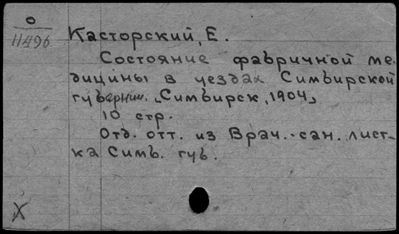 0
11496
Касторский, Е.
Состояние фабричной ме-
дицины в уездах Симбирской
губернии. Симбирск, 1904,
10 стр.
Отд. отт. из Врач.-сан. лист-
ка Симб. губ.
X